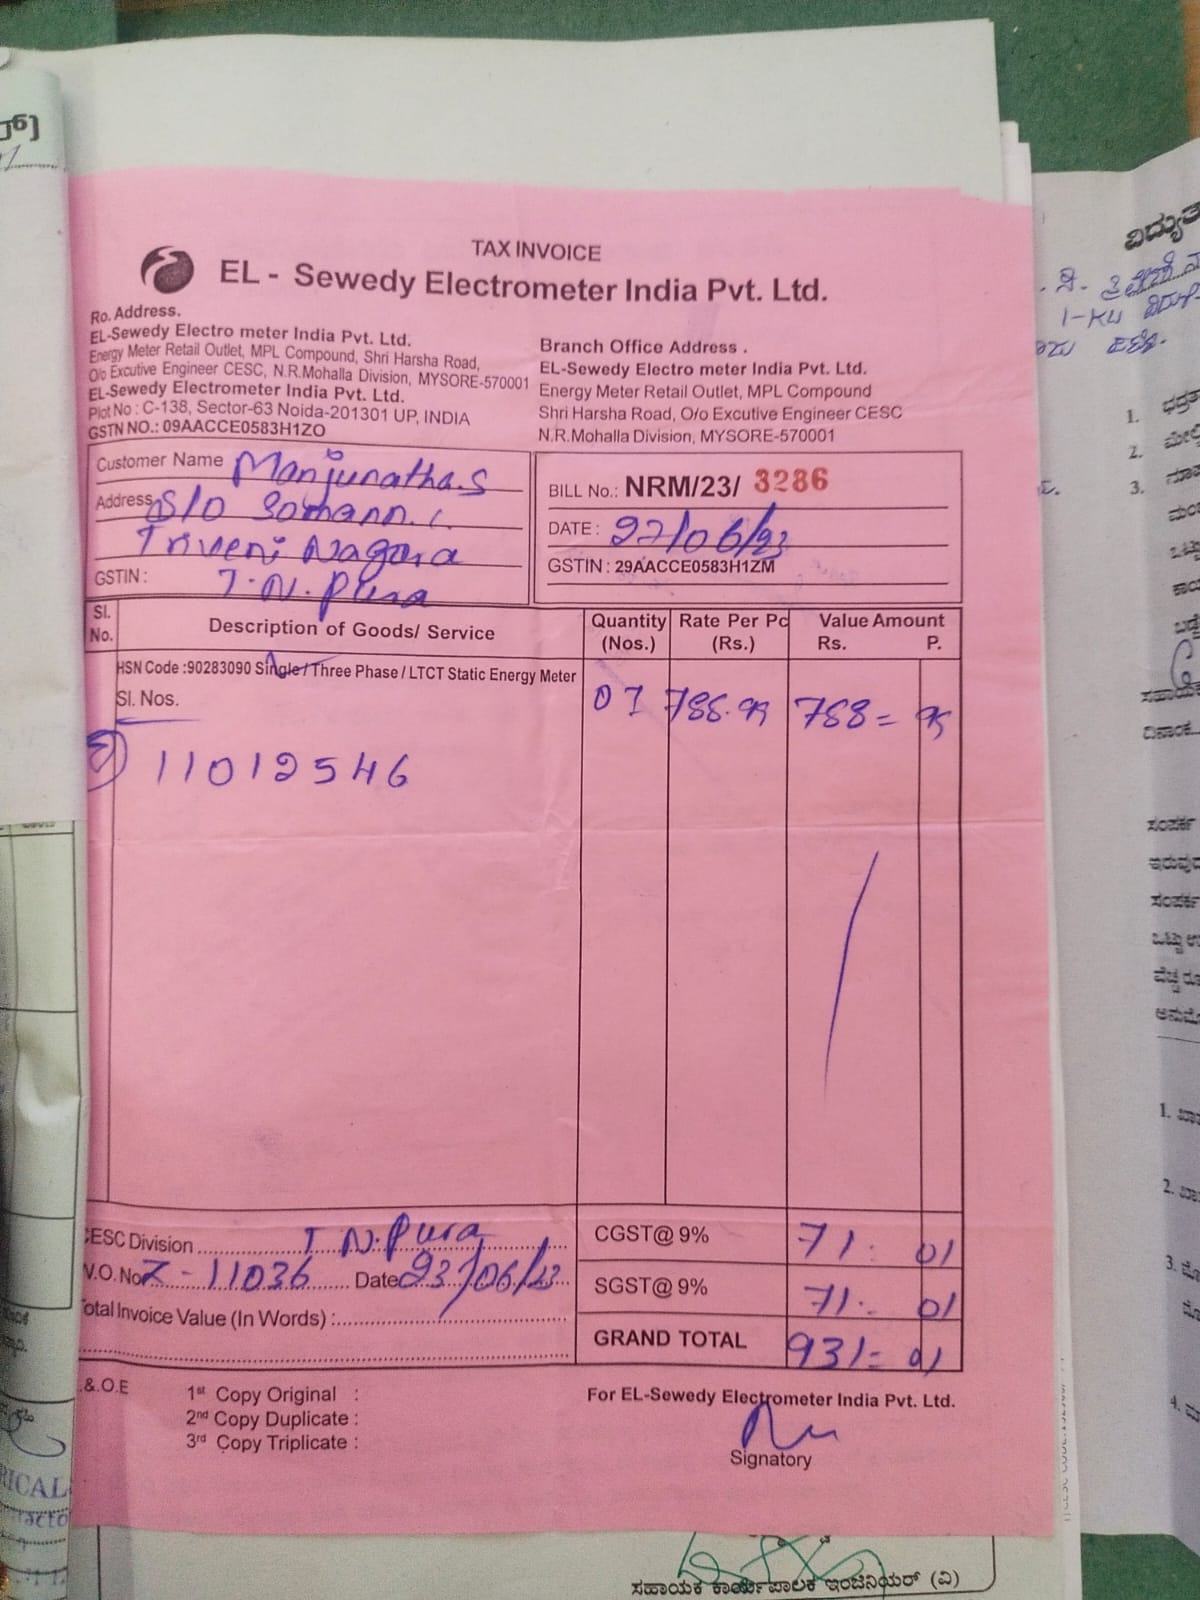 TAX INVOICE
EL - Sewedy Electrometer India Pvt. Ltd.
Ro. Address.
EL-Sewedy Electro meter India Pvt. Ltd.
Energy Meter Retail Outlet, MPL Compound, Shri Harsha Road,
O/o Excutive Engineer CESC, N.R.Mohalla Division, MYSORE-570001
EL-Sewedy Electrometer India Pvt. Ltd.
Plot No : C-138, Sector-63 Noida-201301 UP, INDIA
GSTN NO.: 09AACCE0583H1ZO
Branch Office Address .
EL-Sewedy Electro meter India Pvt. Ltd.
Energy Meter Retail Outlet, MPL Compound
Shri Harsha Road, O/o Excutive Engineer CESC
N.R.Mohalla Division, MYSORE-570001
Customer Name Manjunatha.S
Address S/O
Triveni Nagara
GSTIN : T.N.Pura
BILL No.: NRM/23/ 3286
DATE : 27/06/23
GSTIN : 29AACCE0583H1ZM
Sl. No. Description of Goods/ Service Quantity (Nos.) Rate Per Pc (Rs.) Value Amount Rs. P.
HSN Code :90283090 Single / Three Phase / LTCT Static Energy Meter
Sl. Nos. 01 788.99 788=
11012546
CESC Division T N.Pura
W.O. No Z-11036 Date 23/06/23
Total Invoice Value (In Words) :
CGST@ 9% 71. 01
SGST@ 9% 71. 01
GRAND TOTAL 931= 01
&.O.E
1st Copy Original :
2nd Copy Duplicate :
3rd Copy Triplicate :
For EL-Sewedy Electrometer India Pvt. Ltd.
Signatory
ಸಹಾಯಕ ಕಾರ್ಯಪಾಲಕ ಇಂಜಿನಿಯರ್ (ವಿ)